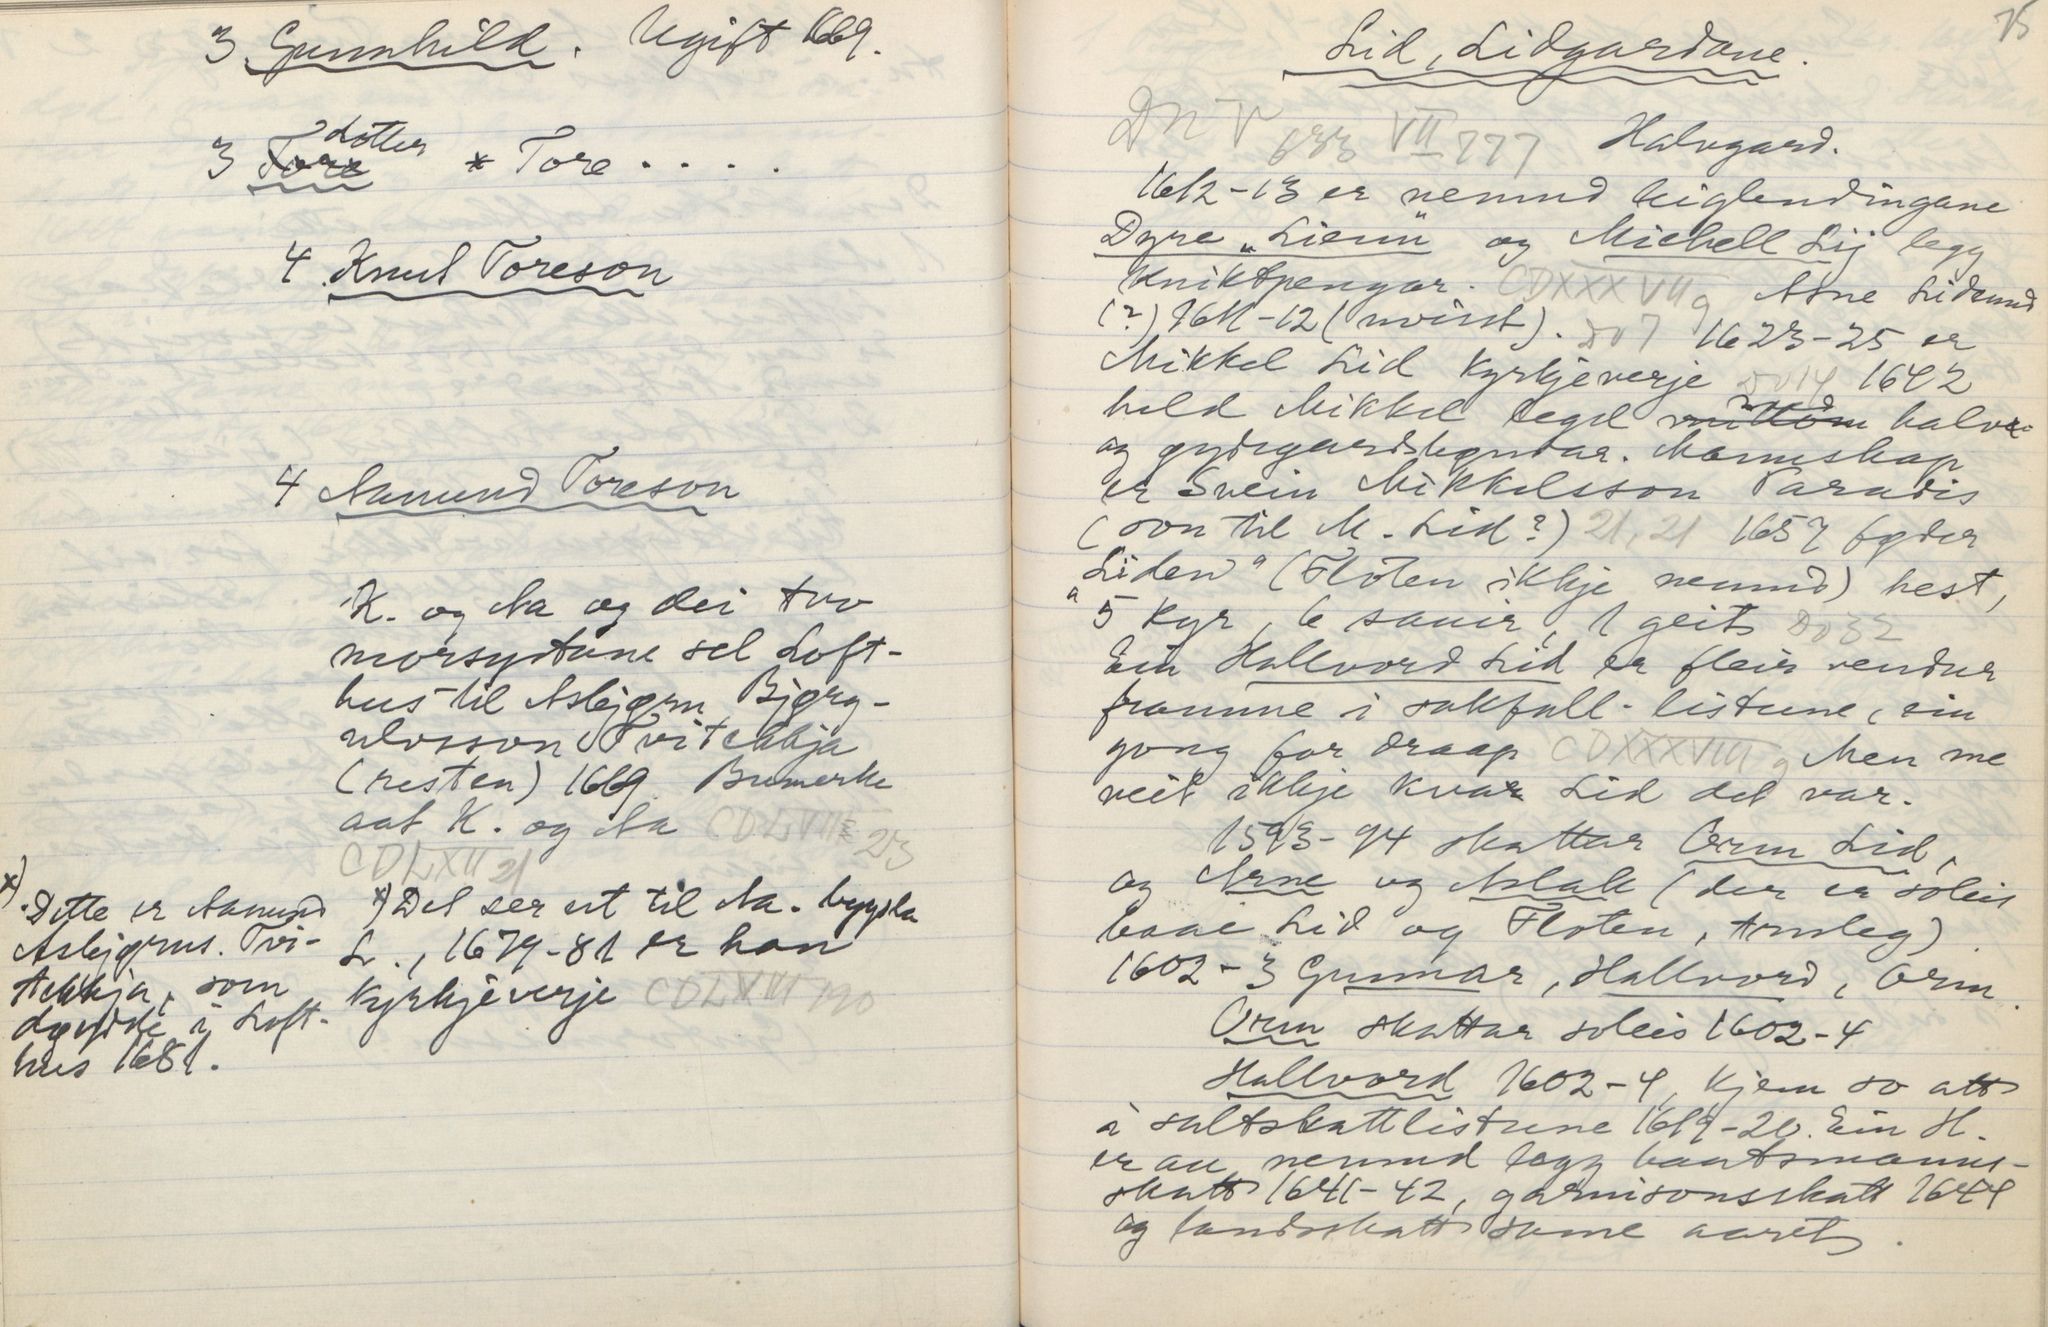 3 Gunnhild. Ugift 1669.
dotter
3 Tore * Tore . . . .
4 Knut Toreson
4 Aamund Toreson
K. og Aa og dei tvo
morsystune sel Loft-
hus til Asbjørn Bjørg-
ulvsson Tvitekkja
(resten) 1669. Bumerke
aat K. og Aa CDLVIII 23
CDLXII 21
x) Det ser ut til Aa. bygsla
L., 1679-81 er han
Kyrkjeverje CDLXVIII 190
x)
Dette er Aamund
Asbjørns. Tvi-
tekkja, som
døydde i Loft-
hus 1681.
75
Lid, Lidgardane.
DN V 633 VII 777 Halvgard.
1612-13 er nemnd leiglendingane
Dyre „Lienn" og Michell Lij legg
Kniktpengar. CDXXXVII 9 Arne Lidsund
(?) 1611-12 (uvisst). DO 7 1623-25 er
Mikkel Lid Kyrkjeverje DO 14 1642
held Mikkel legd med halve-
og øydegardslegdar. Mannskap
er Svein Mikkelsson Paradis
(son til M. Lid?) 21, 21 1657 føder
"Liden" (Floten ikkje nemnd) hest,
5 kyr, 6 sauir, 1 geit DO 32
Ein Hallvord Lid er fleir vendur
framme i sakfall-listune, ein
gong for draap CDXXXVIII 9 Men me
veit ikkje kvar Lid det var.
1593-94 skattar Orm Lid,
og Arne og Aslak (der er soleis
baae Lid og Floten, truleg).
1602-3 Gunnar, Hallvord, Orm.
Orm skattar soleis 1602-4
Hallvord 1602-4, kjem so att
i saltskattlistune 1619-20. Ein H.
er au nemnd legg baatsmanns-
skatt 1641-42, garnisonsskatt 1644
og landsskatt same aaret.